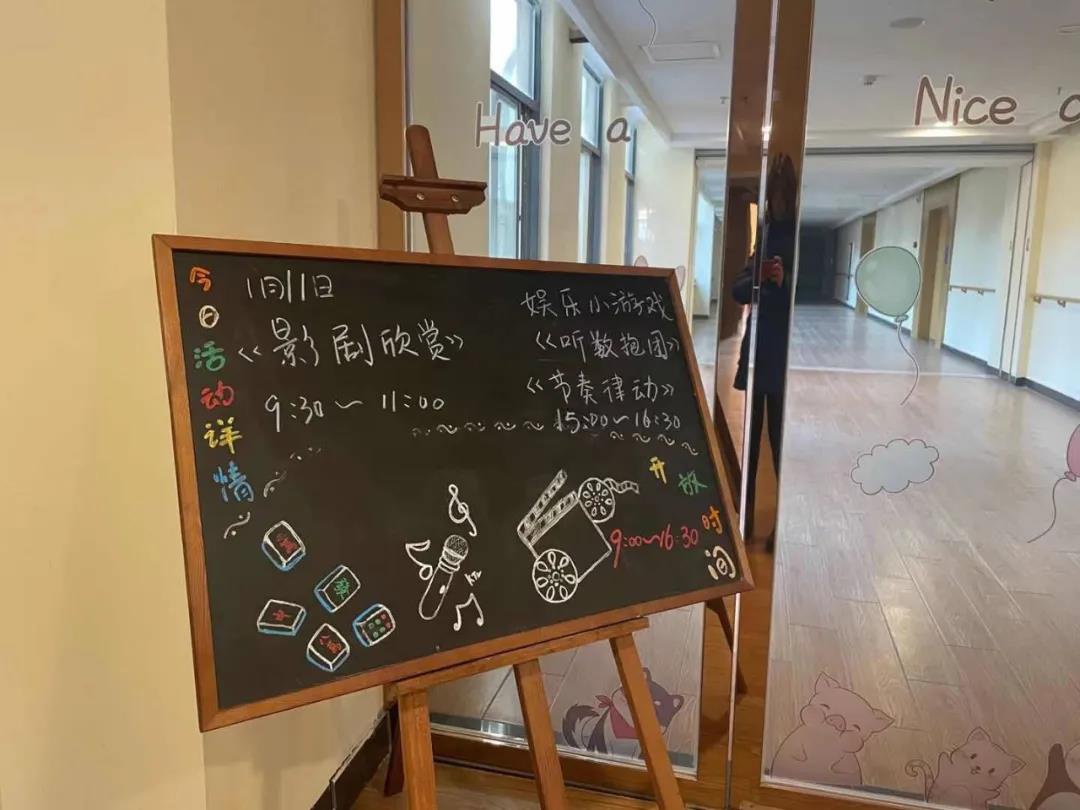 Have a
Nice
今日活动详情
1月11日
《影剧欣赏》
9:30～11:00
娱乐小游戏
《听数抱团》
《节奏律动》
15:00～16:30
开放时间
9:00～16:30